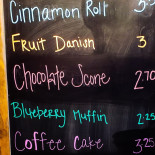 Cinnamon Roll 3.5
Fruit Danish 3
Chocolate Scone 2.70
Blueberry Muffin 2.25
Coffee Cake 3.25